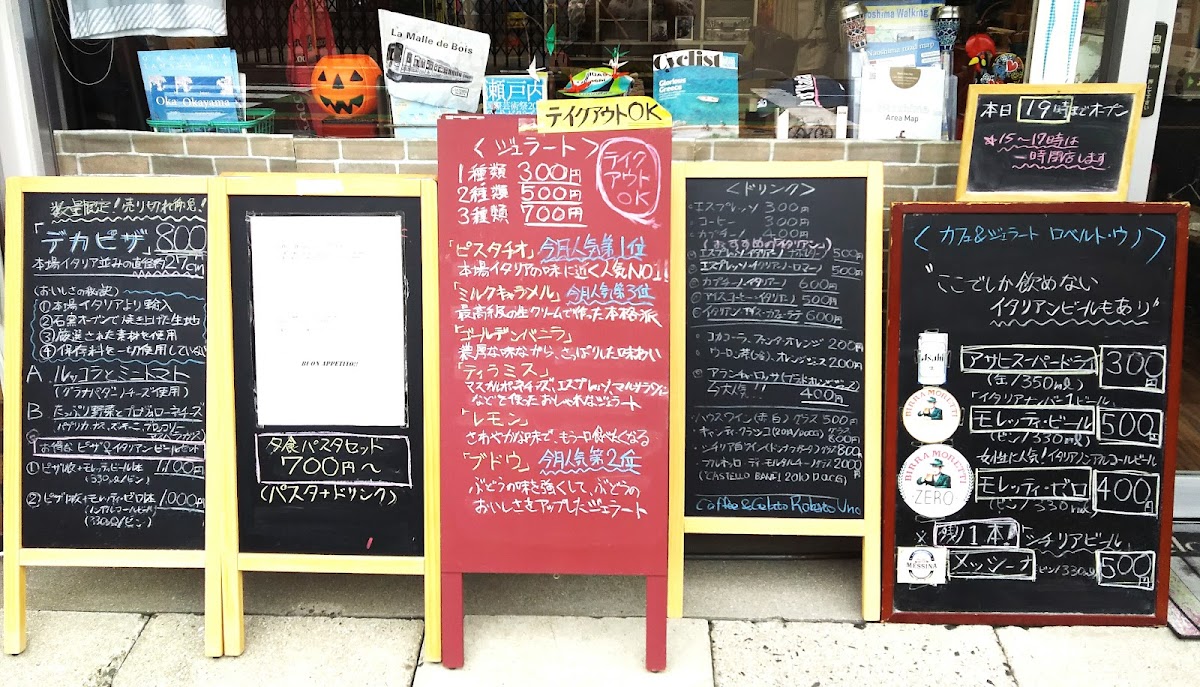 La Malle de Bois
Oka Okayama
瀬戸内
Cyclist
Glorious
Greece
Hiroshima Walking
Area Map
自動
テイクアウトOK
本日 19時までオープン
★15〜17時は
一時閉店します
数量限定！売り切れ御免！
「デカピザ」800
本場イタリア並みの直径約27cm
(おいしさの秘密)
①本場イタリアより輸入
②石窯オーブンで焼き上げた生地
③厳選された素材を使用
④保存料を一切使用していない
A ルッコラとミニトマト
(グラナパダーノチーズ使用)
B たっぷり野菜とプロボローネチーズ
パプリカ、ナス、ズッキーニ、ブロッコリー
アスパラガス
お得な ピザ&イタリアンビールセット
①ピザ1枚+モレッティ・ビール1本 1,100円
(330ml/ビン)
②ピザ1枚+モレッティ・ゼロ1本 1,000円
(ノンアルコールビール)
(330ml/ビン)
BUON APPETITO!!
夕食パスタセット
700円〜
(パスタ+ドリンク)
〈ジェラート〉
テイクアウトOK
1種類 300円
2種類 500円
3種類 700円
「ピスタチオ」今月人気第1位
本場イタリアの味に近く人気NO1!
「ミルクキャラメル」今月人気第3位
最高級の生クリームで作った本格派
「ゴールデンバニラ」
濃厚な味ながら、さっぱりした味わい
「ティラミス」
マスカルポーネチーズ、エスプレッソ、マルサラワイン
などを使ったおしゃれなジェラート
「レモン」
さわやかな味で、もう一口食べたくなる
「ブドウ」今月人気第2位
ぶどうの味を強くして、ぶどうの
おいしさをアップしたジェラート
〈ドリンク〉
・エスプレッソ 300円
・コーヒー 300円
・カプチーノ 400円
(おすすめのイタリアーノ)
エスプレッソ イタリアーノ 500円
エスプレッソ イタリアーノ・ロマーノ 500円
カプチーノ・イタリアーノ 600円
アイスコーヒー・イタリアーノ 500円
イタリアン 600円
・コカコーラ、ファンタ・オレンジ 200円
・ウーロン茶(冷)、オレンジジュース 200円
アランチャ・ロッサ(ブラッドオレンジジュース)
大人気!! 400円
・ハウスワイン(赤・白)グラス 500円
・キャンティ・クラシコ(2014/DOCG) グラス
800円
・シチリア白ワイン 800円
・ブルネッロ・ディ・モンタルチーノ グラス 2000円
(CASTELLO BANFI 2010 DOCG)
Coffee & Gelato Roberto Uno
〈カフェ&ジェラート ロベルト・ウノ〉
"ここでしか飲めない
イタリアンビールもあり"
Asahi
アサヒスーパードライ 300円
(缶/350ml)
「イタリアナンバー1ビール」
BIRRA MORETTI
モレッティ・ビール 500円
(ビン/330ml)
女性に人気！イタリアノンアルコールビール
BIRRA MORETTI
ZERO
モレッティ・ゼロ 400円
(ビン/330ml)
× 残り1本！「シチリアビール」
MESSINA
メッシーナ (ビン/330ml) 500円